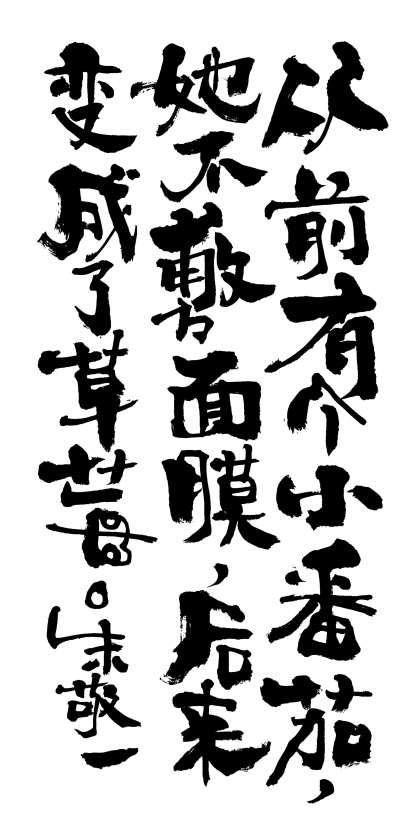 从前有个小番茄，
她不敷面膜，后来
变成了草莓。朱敬一